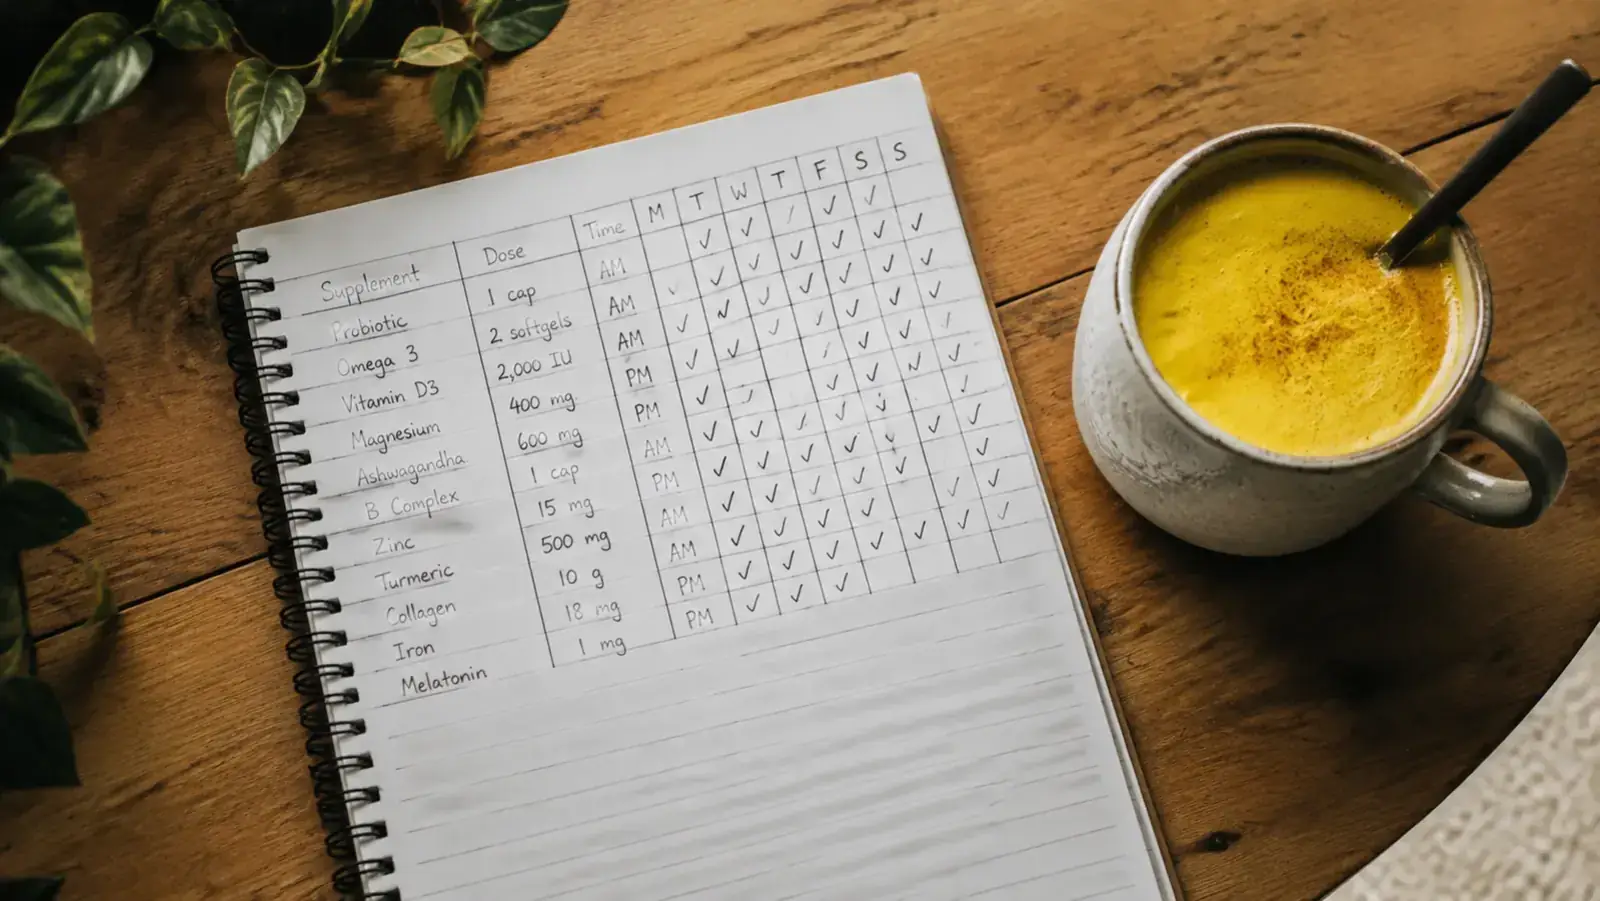 Supplement Dose Time M T W T F S S
Probiotic 1 cap AM ✓ ✓ / ✓ ✓
Omega 3 2 softgels AM ✓ ✓ ✓ ✓ ✓ ✓ ✓
Vitamin D3 2,000 IU AM ✓ ✓ ✓ ✓ ✓ ✓ ✓
Magnesium 400 mg PM ✓ ✓ ✓ ✓ ✓ ✓ ✓
Ashwagandha 600 mg PM ✓ ✓ ✓ ✓ ✓ ✓
B Complex 1 cap AM ✓ ✓ ✓ ✓ ✓ ✓ ✓
Zinc 15 mg PM ✓ ✓ ✓ ✓ ✓ ✓ ✓
Turmeric 500 mg AM ✓ ✓ ✓ ✓ ✓ ✓ ✓
Collagen 10 g AM ✓ ✓ ✓ ✓ ✓ ✓
Iron 18 mg PM ✓ ✓ ✓ ✓ ✓ ✓ ✓
Melatonin 1 mg PM ✓ ✓ ✓